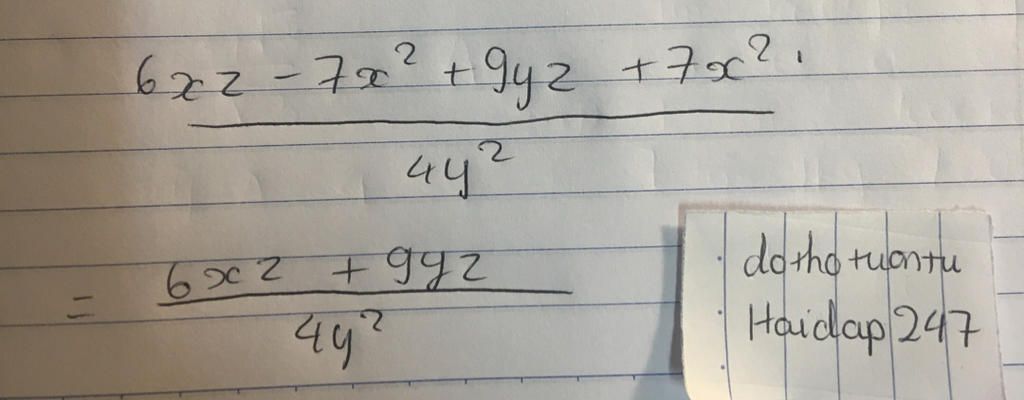 6xz - 7x² + 9yz + 7x²
4y²
= 6xz + 9yz
4y²
dothotuontu
Hoidap247